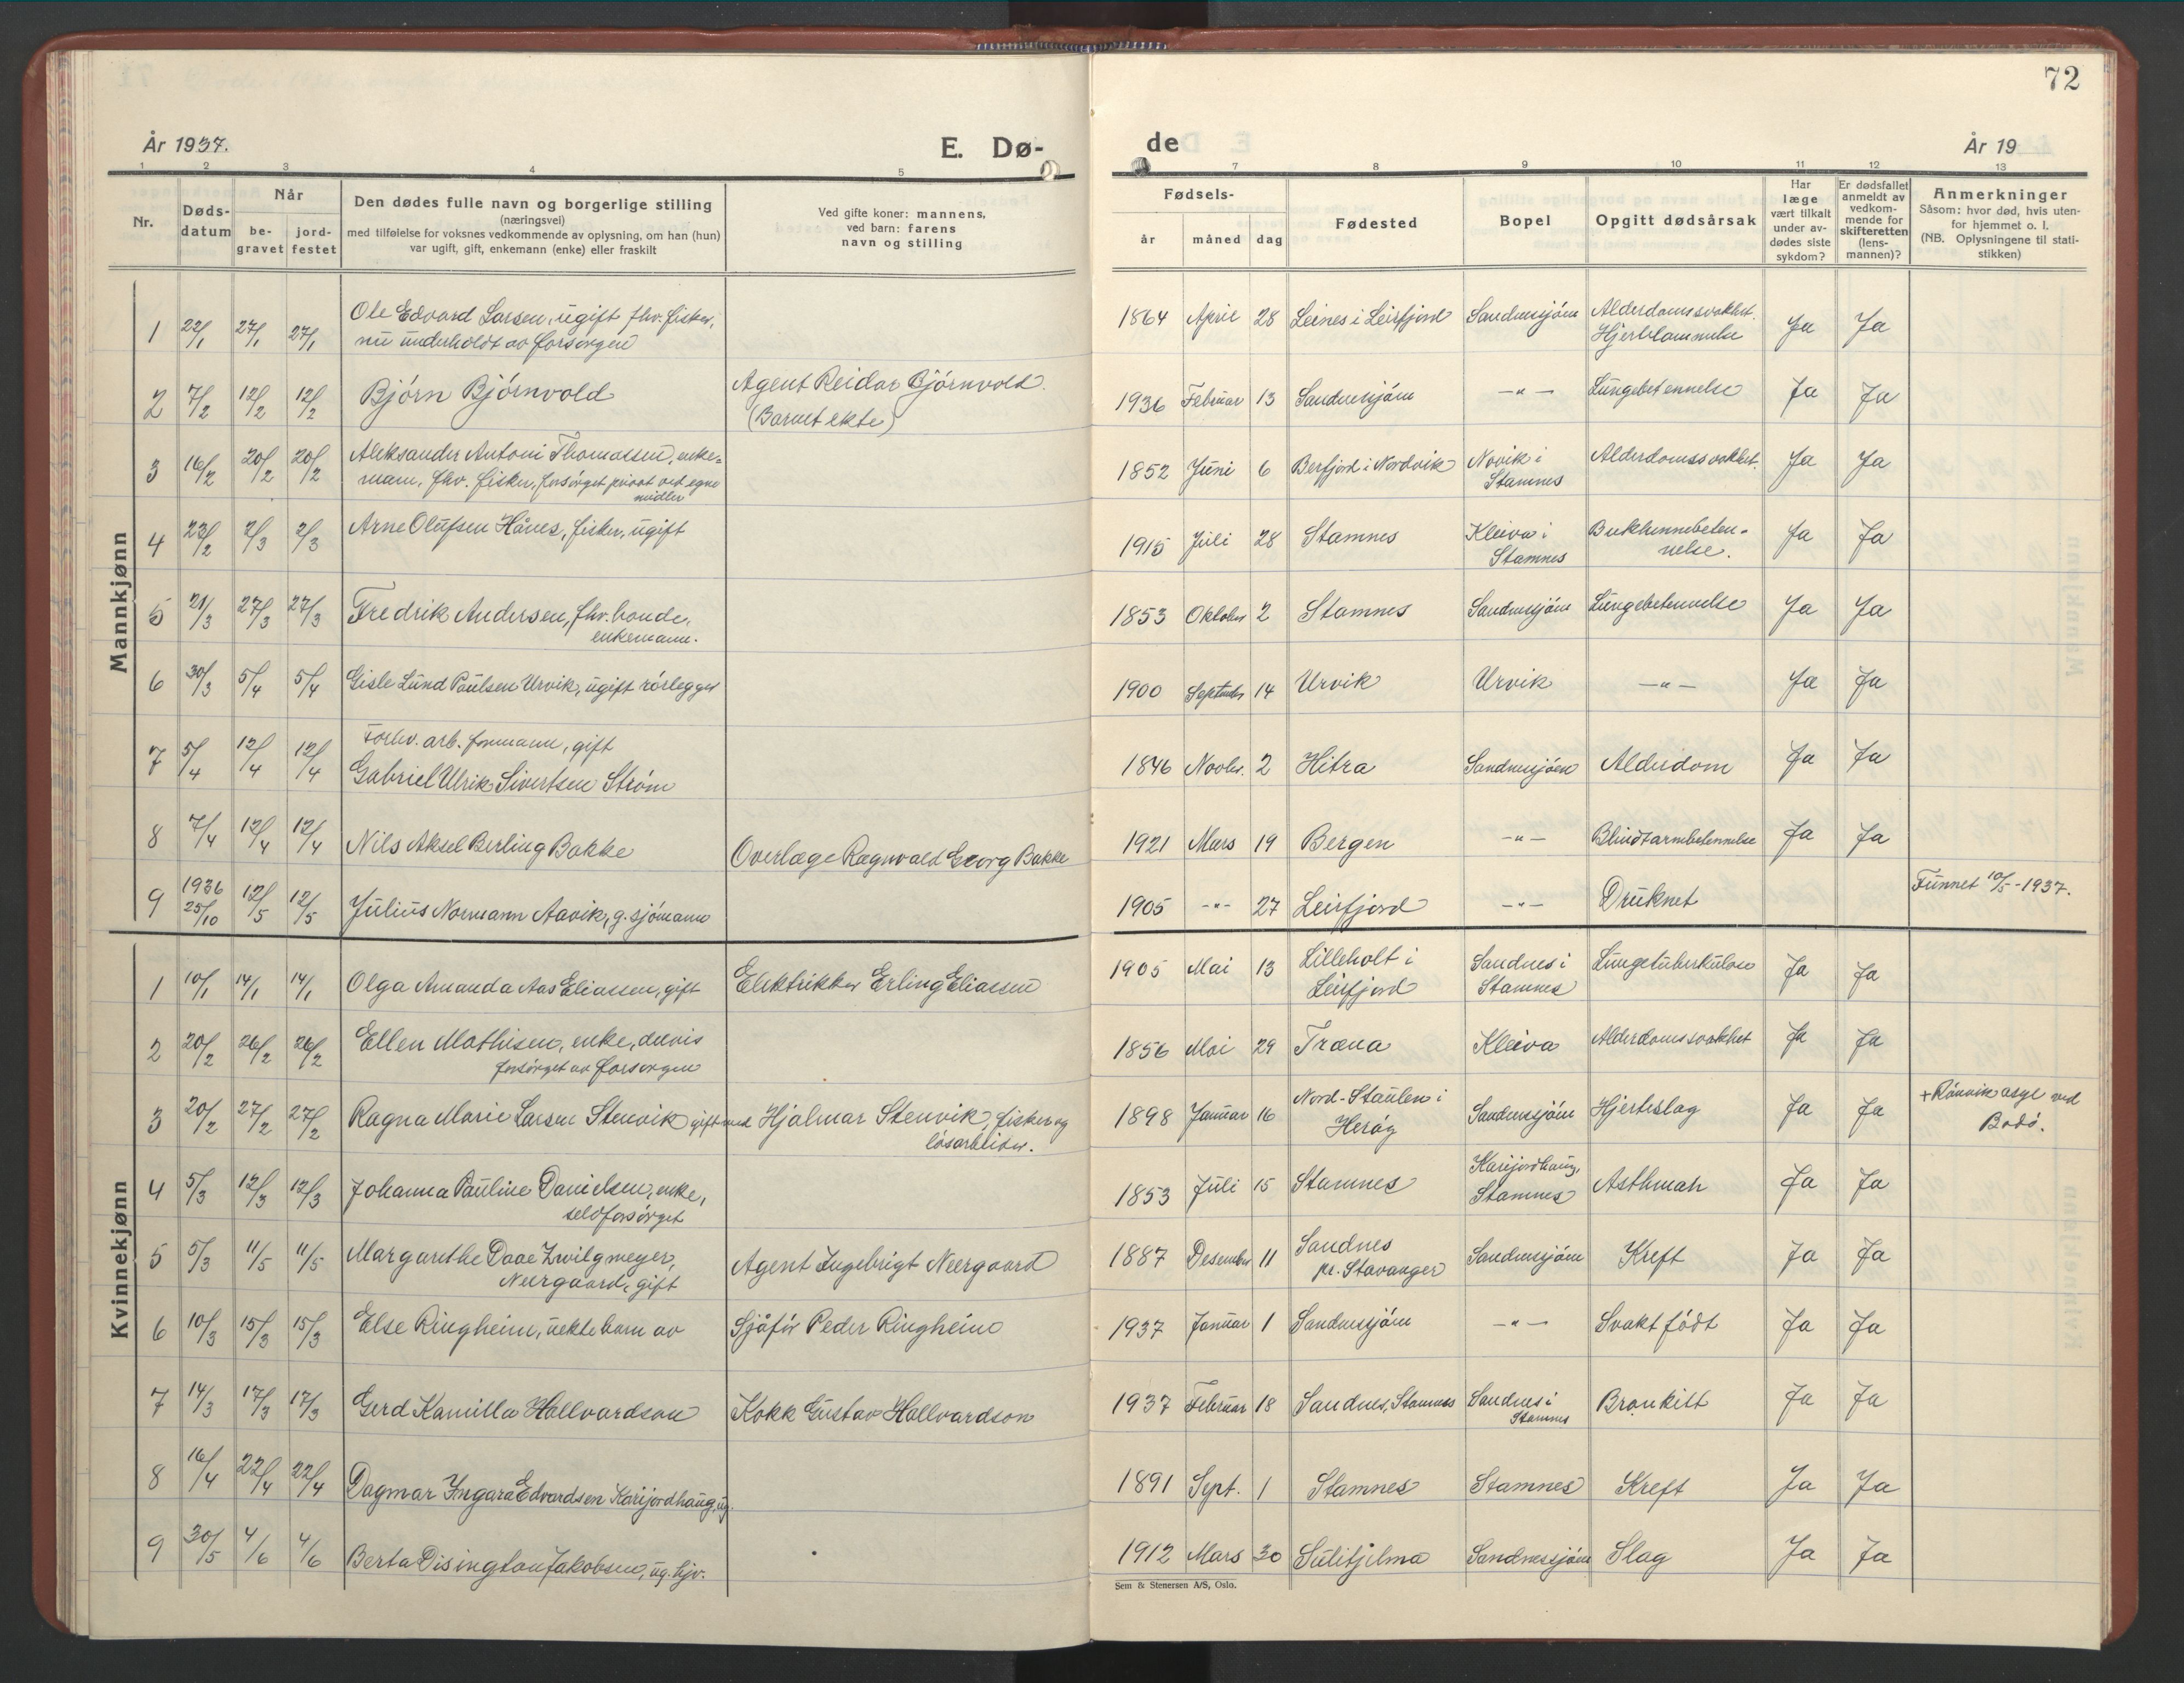 72
År 1937.
E. Dø-
de
År 19
1 2 3 4 5 7 8 9 10 11 12 13
Nr.
Døds-
datum
Når
be-
gravet
jord-
festet
Den dødes fulle navn og borgerlige stilling
(næringsvei)
med tilføielse for voksnes vedkommende av oplysning, om han (hun)
var ugift, gift, enkemann (enke) eller fraskilt
Ved gifte koner: mannens,
ved barn: farens
navn og stilling
Fødsels-
år måned dag
Fødested
Bopel
Opgitt dødsårsak
Har
læge
vært tilkalt
under av-
dødes siste
sykdom?
Er dødsfallet
anmeldt av
vedkom-
mende for
skifteretten
(lens-
mannen)?
Anmerkninger
Såsom: hvor død, hvis uten-
for hjemmet o. l.
(NB. Oplysningene til stati-
stikken)
Mannkjønn
1 22/1 27/1 27/1 Ole Edvard Larsen, ugift fhv. fisker,
nu underholdt av forsorgen
1864 April 28 Leines i Leirfjord Sandnessjøen Alderdomssvakhet.
Hjertelammelse Ja Ja
2 7/2 12/2 12/2 Bjørn Bjørnvold Agent Reidar Bjørnvold.
(Barnet ekte)
1936 Februar 13 Sandnessjøen —"— Lungebetennelse Ja Ja
3 16/2 20/2 20/2 Aleksander Antoni Thomassen, enke=
mann, fhv. fisker, forsørget privat ved egne
midler
1852 Juni 6 Berfjord i Nordvik Novik i
Stamnes Alderdomssvakhet. Ja Ja
4 23/2 2/3 2/3 Arne Olufsen Hånes, fisker, ugift
1915 Juli 28 Stamnes Kleiva i
Stamnes Bukhinnebeten-
nelse. Ja Ja
5 21/3 27/3 27/3 Fredrik Andersen, fhv. bonde,
enkemann.
1853 Oktober 2 Stamnes Sandnessjøen Lungebetennelse Ja Ja
6 30/3 5/4 5/4 Gisle Lund Paulsen Urvik, ugift rørlegger
1900 September 14 Urvik Urvik —"— Ja Ja
7 5/4 12/4 12/4 Forhv. arb. formann, gift
Gabriel Ulrik Sivertsen Strøm
1846 Novbr. 2 Hitra Sandnessjøen Alderdom Ja Ja
8 7/4 12/4 12/4 Nils Aksel Berling Bakke Overlæge Ragnvald Georg Bakke
1921 Mars 19 Bergen —"— Blindtarmbetennelse Ja Ja
9 1936
25/10 12/5 12/5 Julius Normann Aavik, g. sjømann
1905 -"- 27 Leirfjord —"— Druknet Funnet 10/5-1937.
Kvinnekjønn
1 10/1 14/1 14/1 Olga Amanda Aas Eliassen, gift Elektrikker Erling Eliassen
1905 Mai 13 Lilleholt i
Leirfjord Sandnes i
Stamnes Lungetuberkulose Ja Ja
2 20/2 26/2 26/2 Ellen Mathisen, enke, delvis
forsørget av forsorgen
1856 Mai 29 Træna Kleiva Alderdomssvakhet Ja Ja
3 20/2 27/2 27/2 Ragna Marie Larsen Stenvik gift med Hjalmar Stenvik, fisker og
løsarbeider.
1898 Januar 16 Nord-Staulen i
Herøy Sandnessjøen Hjerteslag Ja Ja + Rønvik asyl ved
Bodø.
4 5/3 12/3 12/3 Johanna Pauline Danielsen, enke,
selvforsørget
1853 Juli 15 Stamnes Karijordhaug,
Stamnes Asthmah Ja Ja
5 5/3 11/5 11/5 Margarethe Daae Zwilgmeyer,
Neergaard, gift Agent Ingebrigt Neergaard
1887 Desember 11 Sandnes
pr. Stavanger Sandnessjøen Kreft Ja Ja
6 10/3 15/3 15/3 Else Ringheim, uekte barn av Sjåfør Peder Ringheim
1937 Januar 1 Sandnessjøen —"— Svakt født Ja Ja
7 14/3 17/3 17/3 Gerd Kamilla Hallvardson Kokk Gustav Hallvardson
1937 Februar 18 Sandnes, Stamnes Sandnes i
Stamnes Bronkitt Ja Ja
8 16/4 22/4 22/4 Dagmar Yngara Edvardsen Karijordhaug, ug.
1891 Sept. 1 Stamnes Stamnes Kreft Ja Ja
9 30/5 4/6 4/6 Berta Disington Jakobsen, ug. hjv.
1912 Mars 30 Sulitjelma Sandnessjøen Slag Ja Ja
Sem & Stenersen A/S, Oslo.